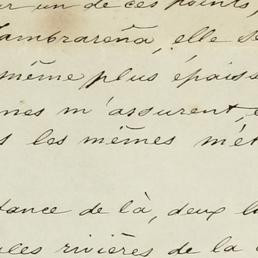 un de ces points,
ambrareña, elle se
même plus épaiss
nes m'assurent,
s les mêmes mét
tance de là, deux l
les rivières de la